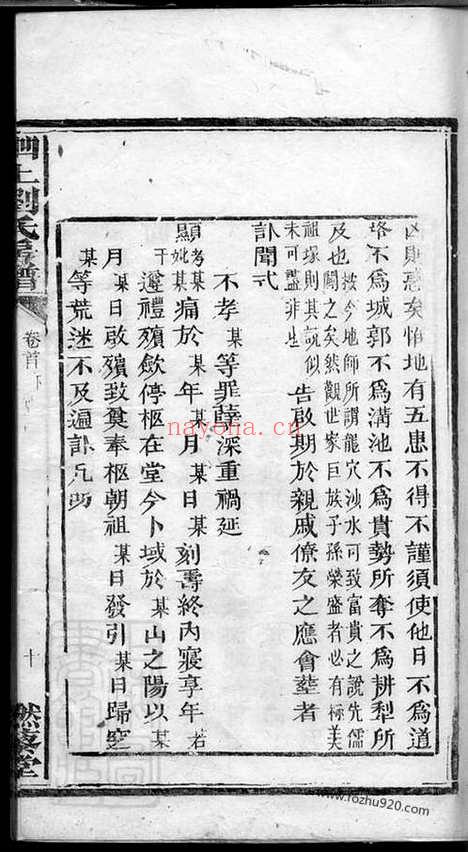 凶則惑矣惟地有五患不得不謹須使他日不爲道
路不爲城郭不爲溝池不爲貴勢所奪不爲耕犁所
及也 按今地師所謂龍穴沙水可致富貴之說先儒
闢之矣然觀世家巨族子孫榮盛者必有極美
祖塚則其說似
未可盡非也 告啟期於親戚僚友之應會塟者
訃聞式
不孝某等罪孽深重禍延
顯考某
妣某 痛於某年某月某日某刻壽終內寢享年若
干 遵禮殯歛停柩在堂今卜域於某山之陽以某
月某日啟殯致奠奉柩朝祖某日發引某日歸窆
某等荒迷不及遍訃凡
泗上劉氏譜
卷首下
十
燃藜堂
nayona.cn
www.fozhu920.com